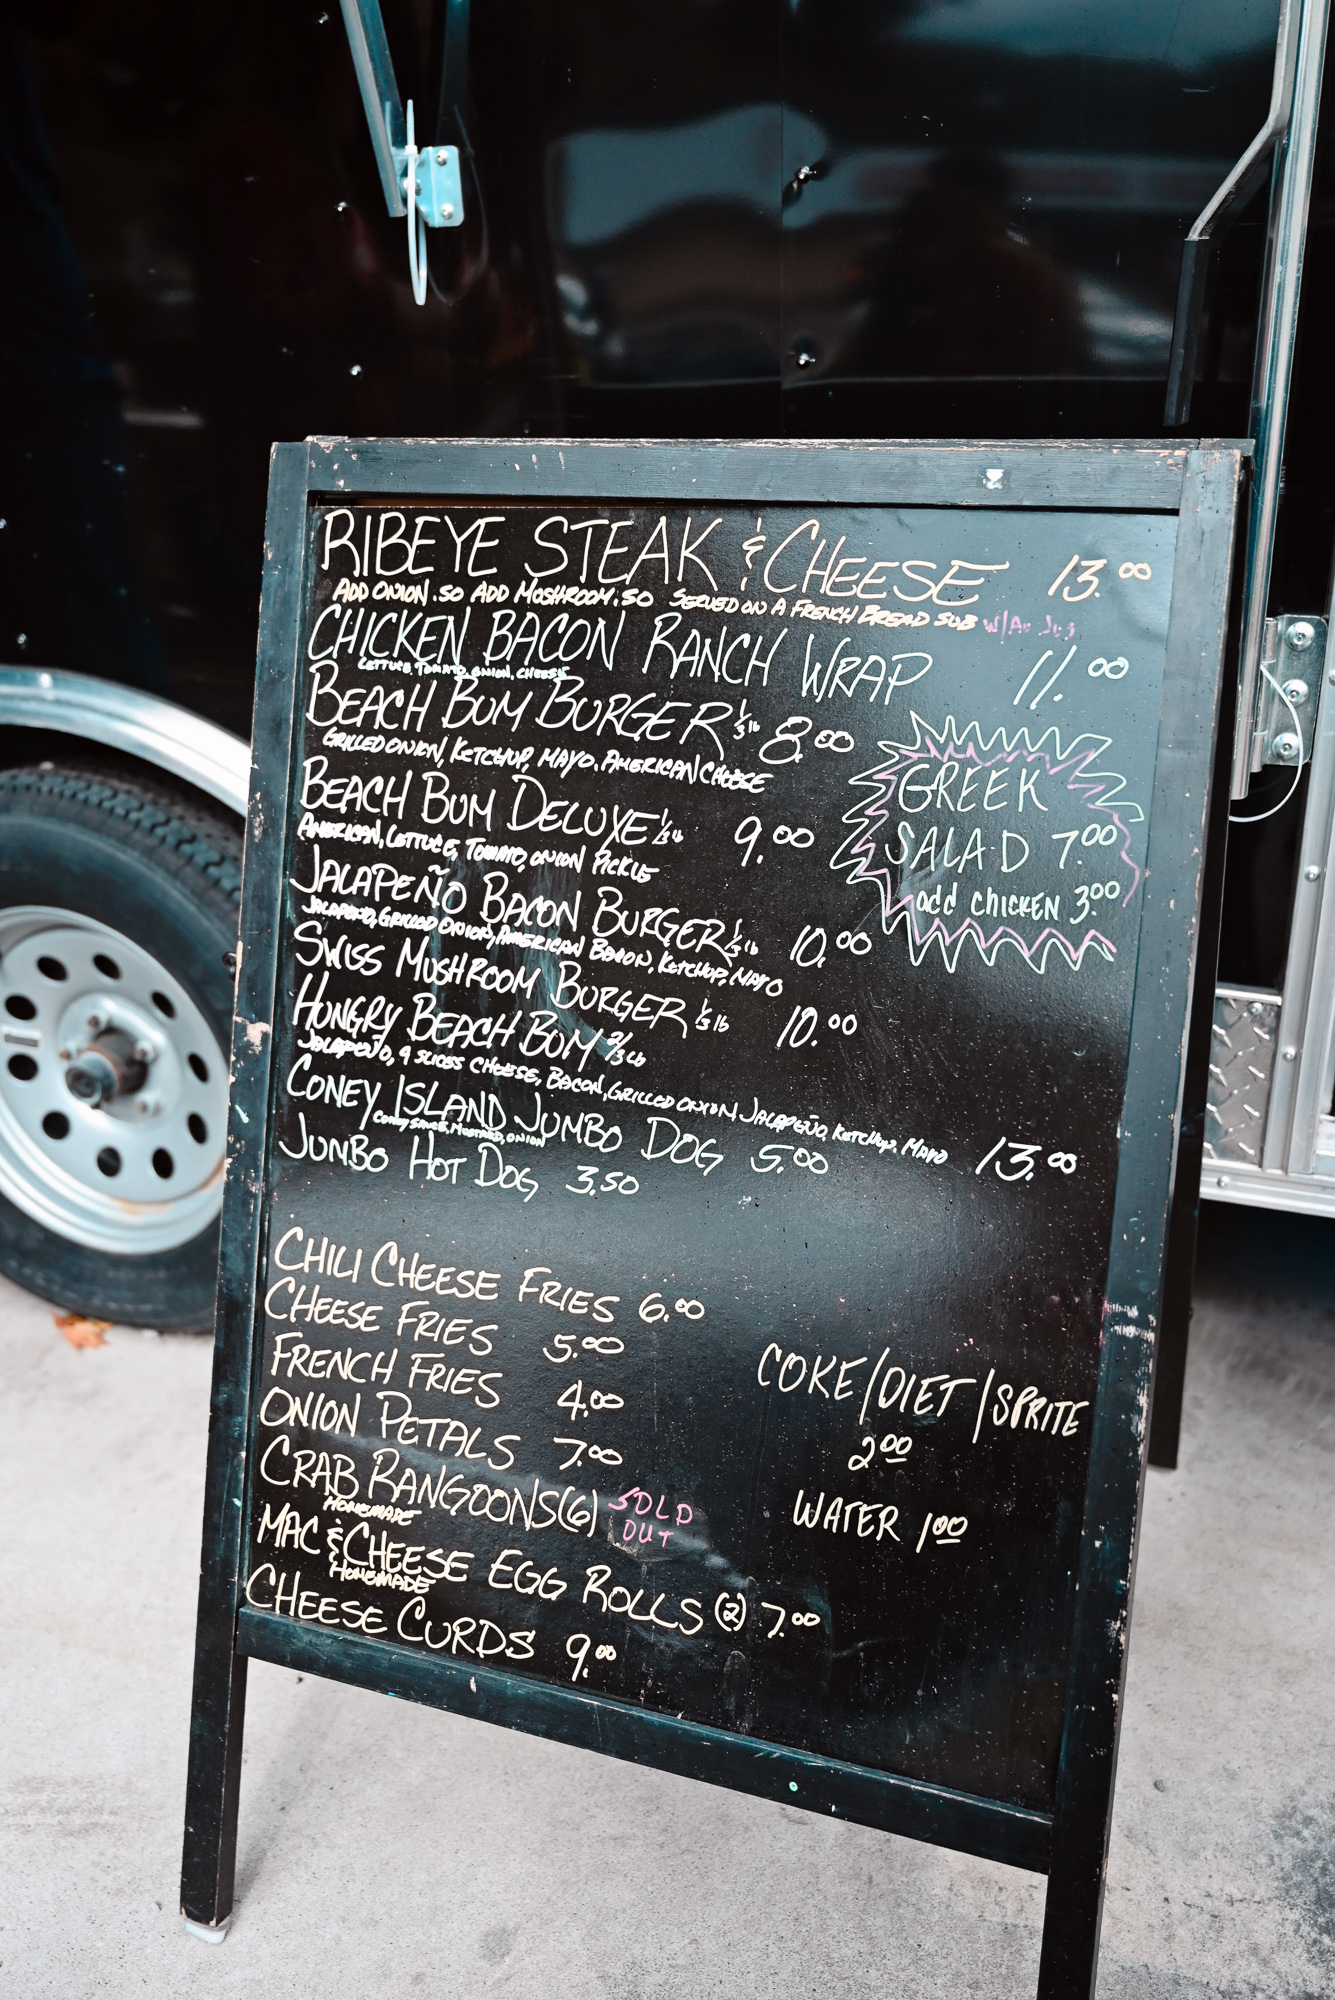 RIBEYE STEAK & CHEESE 13.00
ADD ONION .50 ADD MUSHROOM .50 SERVED ON A FRENCH BREAD SUB w/Au Jus
CHICKEN BACON RANCH WRAP 11.00
LETTUCE, TOMATO, ONION, CHEESE
BEACH BUM BURGER 1/3 lb 8.00
GRILLED ONION, KETCHUP, MAYO, AMERICAN CHEESE
BEACH BUM DELUXE 1/3 lb 9.00
AMERICAN, LETTUCE, TOMATO, ONION PICKLE
JALAPEÑO BACON BURGER 1/3 lb 10.00
JALAPEÑO, GRILLED ONION, AMERICAN BACON, KETCHUP, MAYO
SWISS MUSHROOM BURGER 1/3 lb 10.00
HUNGRY BEACH BUM 2/3 Lb
JALAPEÑO, 4 SLICES CHEESE, BACON, GRILLED ONION JALAPEÑO, KETCHUP, MAYO 13.00
CONEY ISLAND JUMBO DOG 5.00
CONEY SAUCE, MUSTARD, ONION
JUMBO HOT DOG 3.50
GREEK
SALAD 7.00
add CHICKEN 3.00
CHILI CHEESE FRIES 6.00
CHEESE FRIES 5.00
FRENCH FRIES 4.00
ONION PETALS 7.00
CRAB RANGOONS(6) SOLD OUT
HOMEMADE
MAC & CHEESE EGG ROLLS (2) 7.00
HOMEMADE
CHEESE CURDS 9.00
COKE/DIET/SPRITE
2.00
WATER 1.00